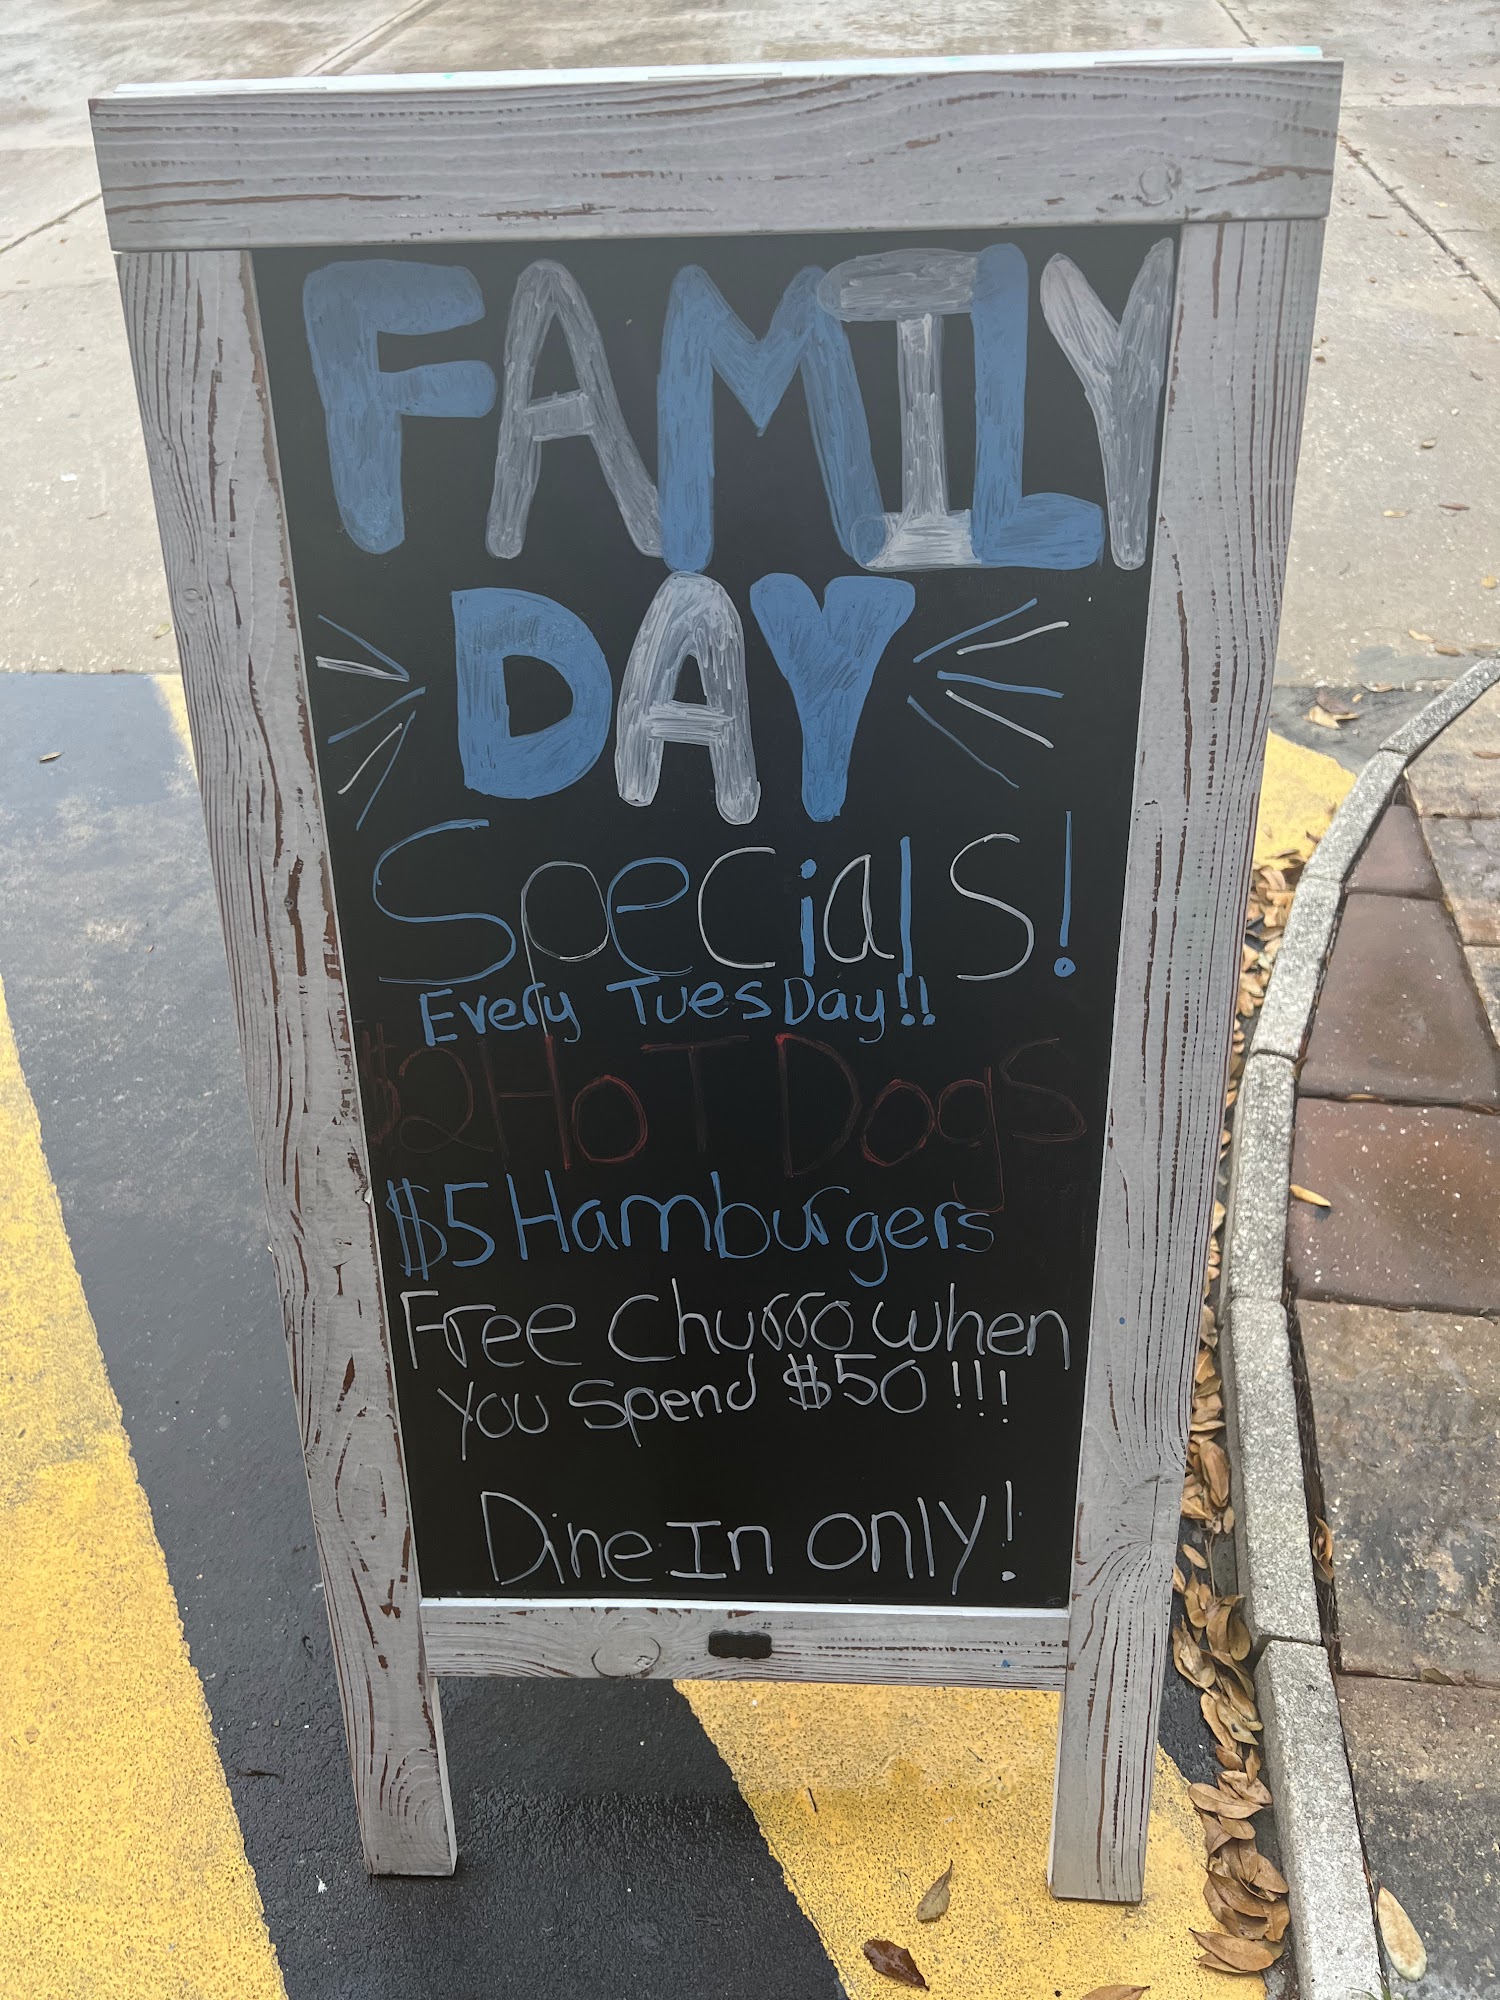 FAMILY
DAY
Specials!
Every Tuesday!!
$2 HoT Dogs
$5 Hamburgers
Free Churro when
you spend $50!!!
Dine In only!